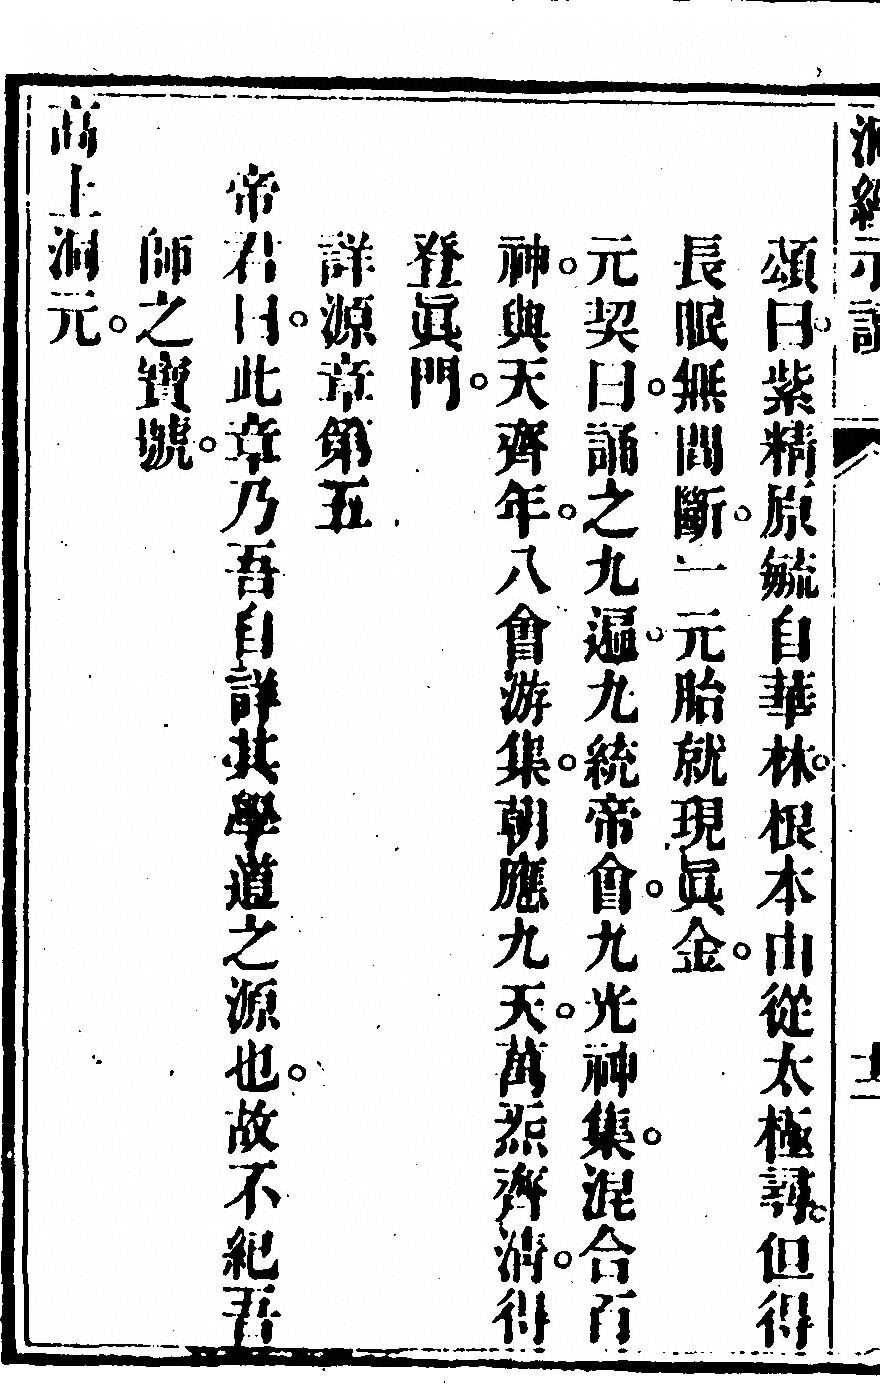 洞經示讀
頌曰。紫精原毓自華林。根本由從太極尋。但得
長眠無間斷。一元胎就現眞金。
元契曰。誦之九遍。九統帝會。九光神集。混合百
神。與天齊年。八會游集。朝應九天。萬炁齊濟。得
登眞門。
詳源章第五
帝君曰。此章乃吾自詳其學道之源也。故不紀吾
師之寶號。
高上洞元。